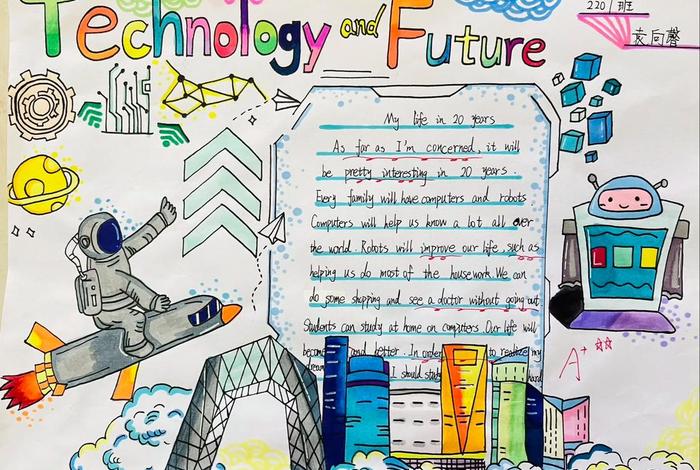 Technology and Future
220 班
袁向馨
My life in 20 years
As far as I'm concerned, it will
be pretty interesting in 20 years
Every family will have computers and robots
Computers will help us know a lot all over
the world. Robots will improve our life, such as
helping us do most of the housework. We can
do some shopping and see a doctor without going out
Students can study at home on computers. Our life will
become and better. In order to realize my
dream I should study hard
A+